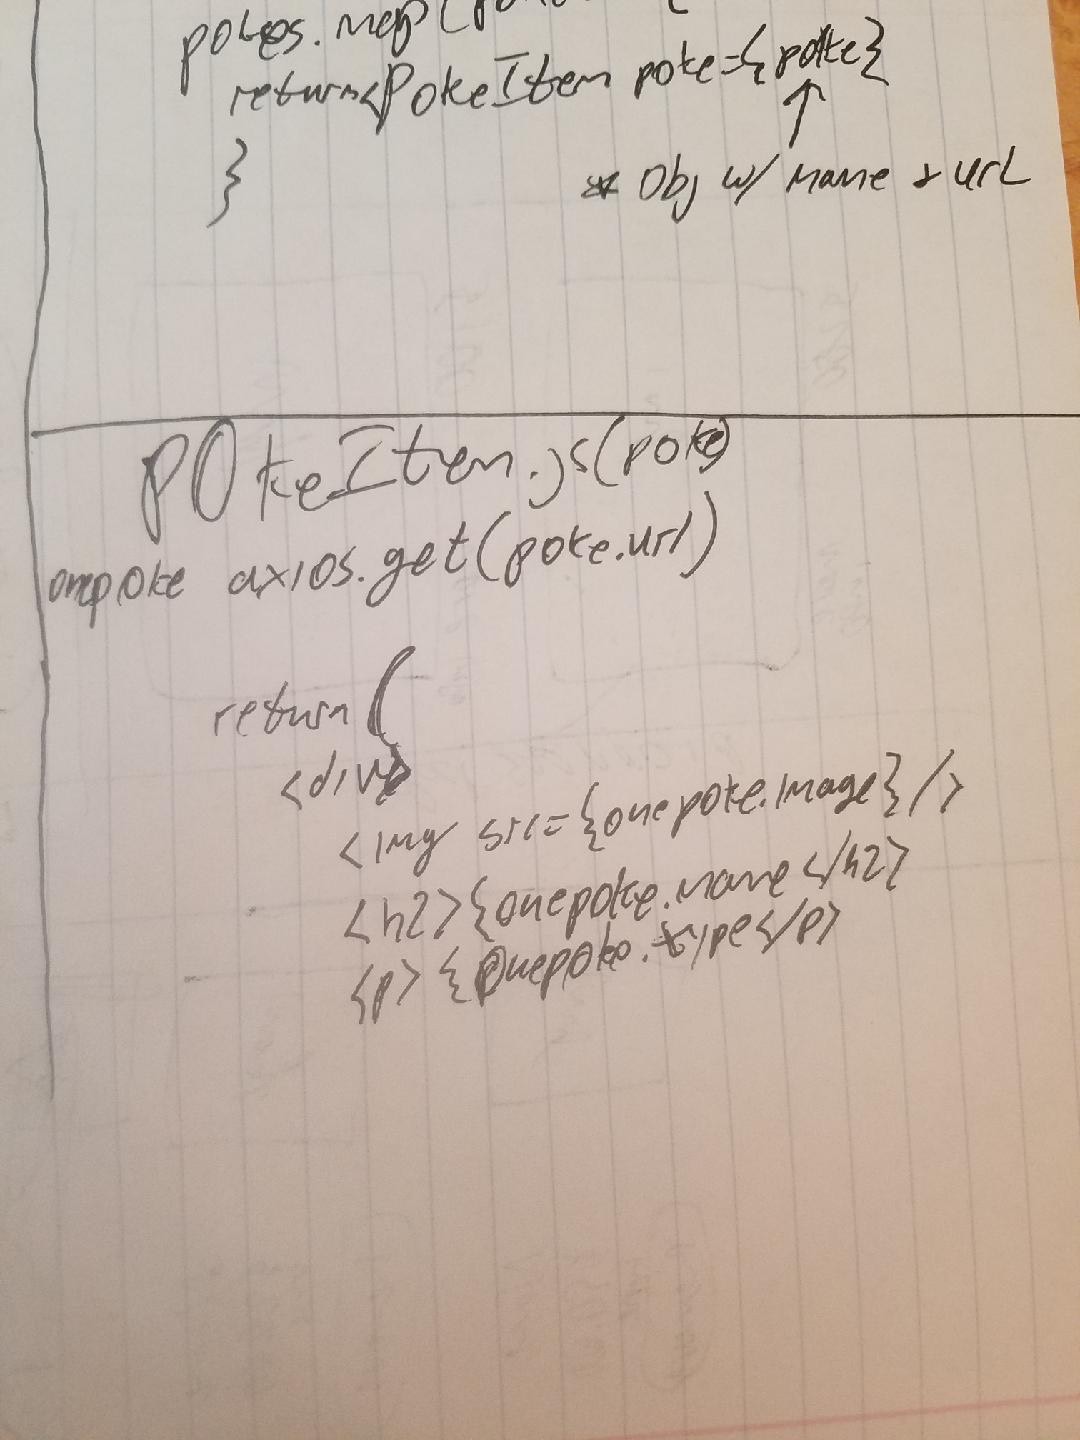 pokes.map(
return<PokeItem poke={poke}
}
* Obj w/ name & url
PokeItem.js(poke)
onepoke axios.get(poke.url)
return(
<div>
<img src={onepoke.image}/>
<h2>{onepoke.name</h2>
<p>{onepoke.type</p>